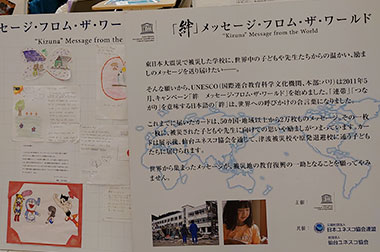 セージ・フロム・ザ・ワー
"Kizuna" Message from the
「絆」メッセージ・フロム・ザ・ワールド
"Kizuna" Message from the World
東日本大震災で被災した学校に、世界中の子どもや先生たちからの温かい、励ま
しのメッセージを送り届けたい――。
そんな願いから、UNESCO（国際連合教育科学文化機関、本部：パリ）は2011年5
月、キャンペーン「絆　メッセージ・フロム・ザ・ワールド」を始めました。「連帯」「つな
がり」を意味する日本語の「絆」は、世界への呼びかけの合言葉になりました。
これまでに届いたカードは、50カ国・地域以上から2万枚ものメッセージ。その一枚
一枚は、被災された子どもや先生に向けての思いや励ましがつまっています。カー
ドは展示後、仙台ユネスコ協会を通じて、津波被災校や原発退避校に通う子ども
たちに届けられます。
世界から集まったメッセージが、被災地の教育復興の一助となることを願ってやみ
ません。
主催
共催
日本ユネスコ協会連盟
仙台ユネスコ協会